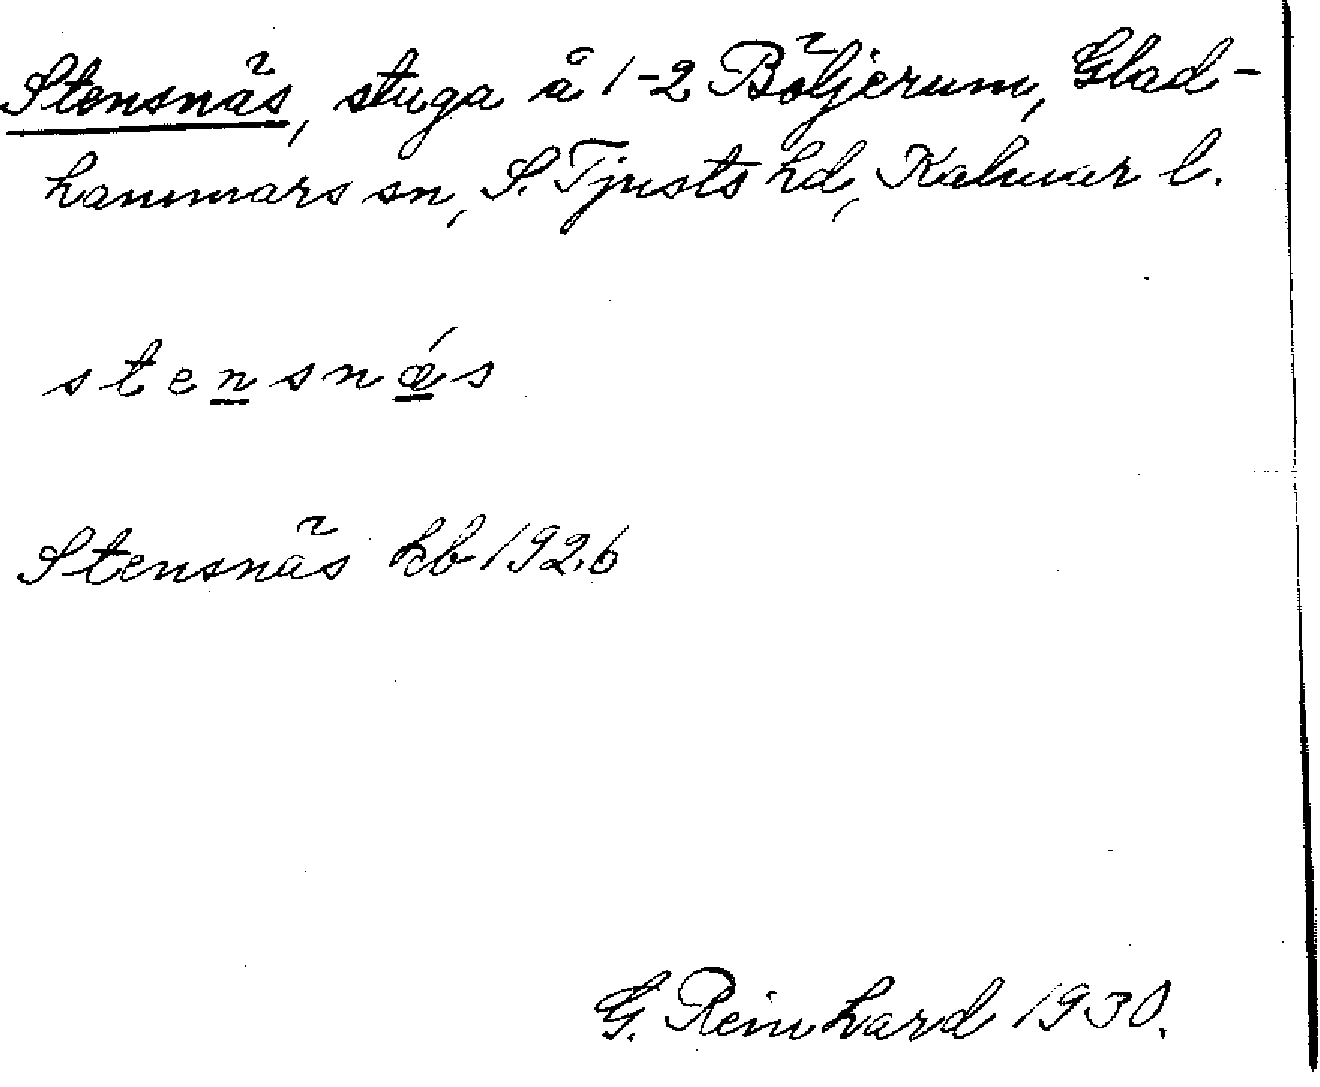 Stensnäs, stuga å 1-2 Böljerum, Glad-
hammars sn, S. Tjusts hd, Kalmar l.
stensnǽs
Stensnäs hb 1926
G. Reinhard 1930.